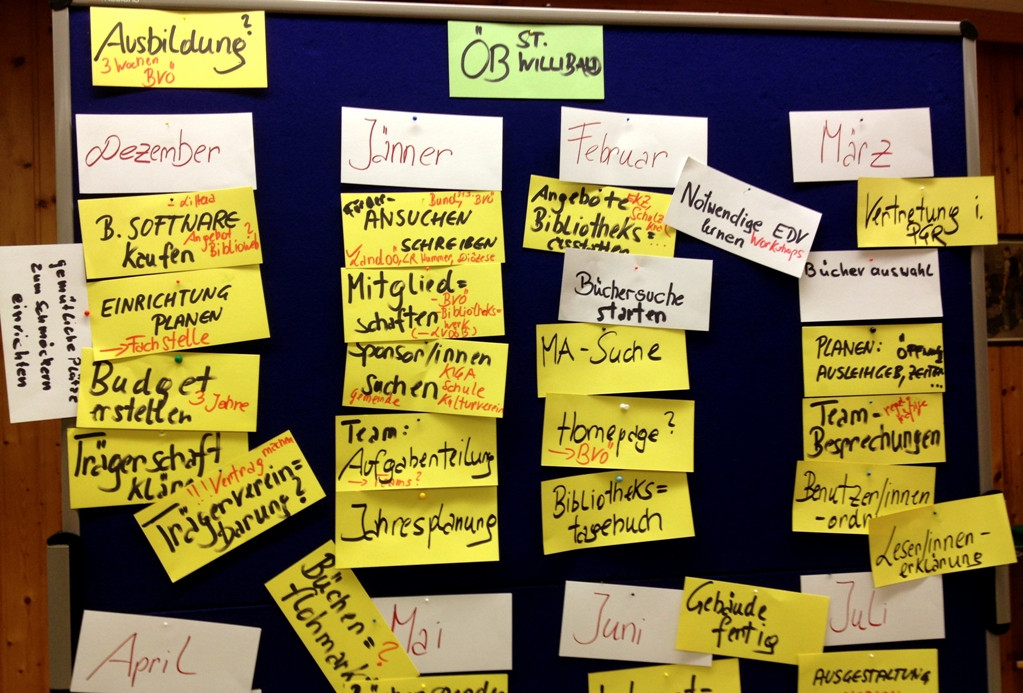 Ausbildung?
3 Wochen
BVÖ
ÖB ST.
WILLIBALD
Dezember
B. SOFTWARE
kaufen
Angebot?
Biblioweb
EINRICHTUNG
PLANEN
→ Fachstelle
gemütliche Plätze
zum Schmöckern
einrichten
Budget
erstellen
3 Jahre
Trägerschaft
!!! Vertrag machen
Trägerverein=
barung?
Jänner
Bund, BVÖ
ANSUCHEN
SCHREIBEN
Mitglied=
schaften
- BVÖ
- Bibliotheks-
werk
Sponsor/innen
suchen
KIGA
Schule
Kulturverein
gemeinde
Team:
Aufgabenteilung
→ Teams?
Jahresplanung
Februar
Angebote
EKZ
Schulz
Bibliotheks=
Notwendige EDV
lernen Workshops
Büchersuche
starten
MA-Suche
Homepage?
→ BVÖ
Bibliotheks=
tagebuch
März
Vertretung i.
PGR
Bücherauswahl
PLANEN: ÖFFNUNG
AUSLEIHGEB, ZEITEN
...
Team-
Besprechungen
Benutzer/innen
-ordn
Leser/innen-
erklärung
April
Bücher=
flohmarkt?
Mai
Juni
Gebäude
fertig
Juli
AUSGESTALTUNG